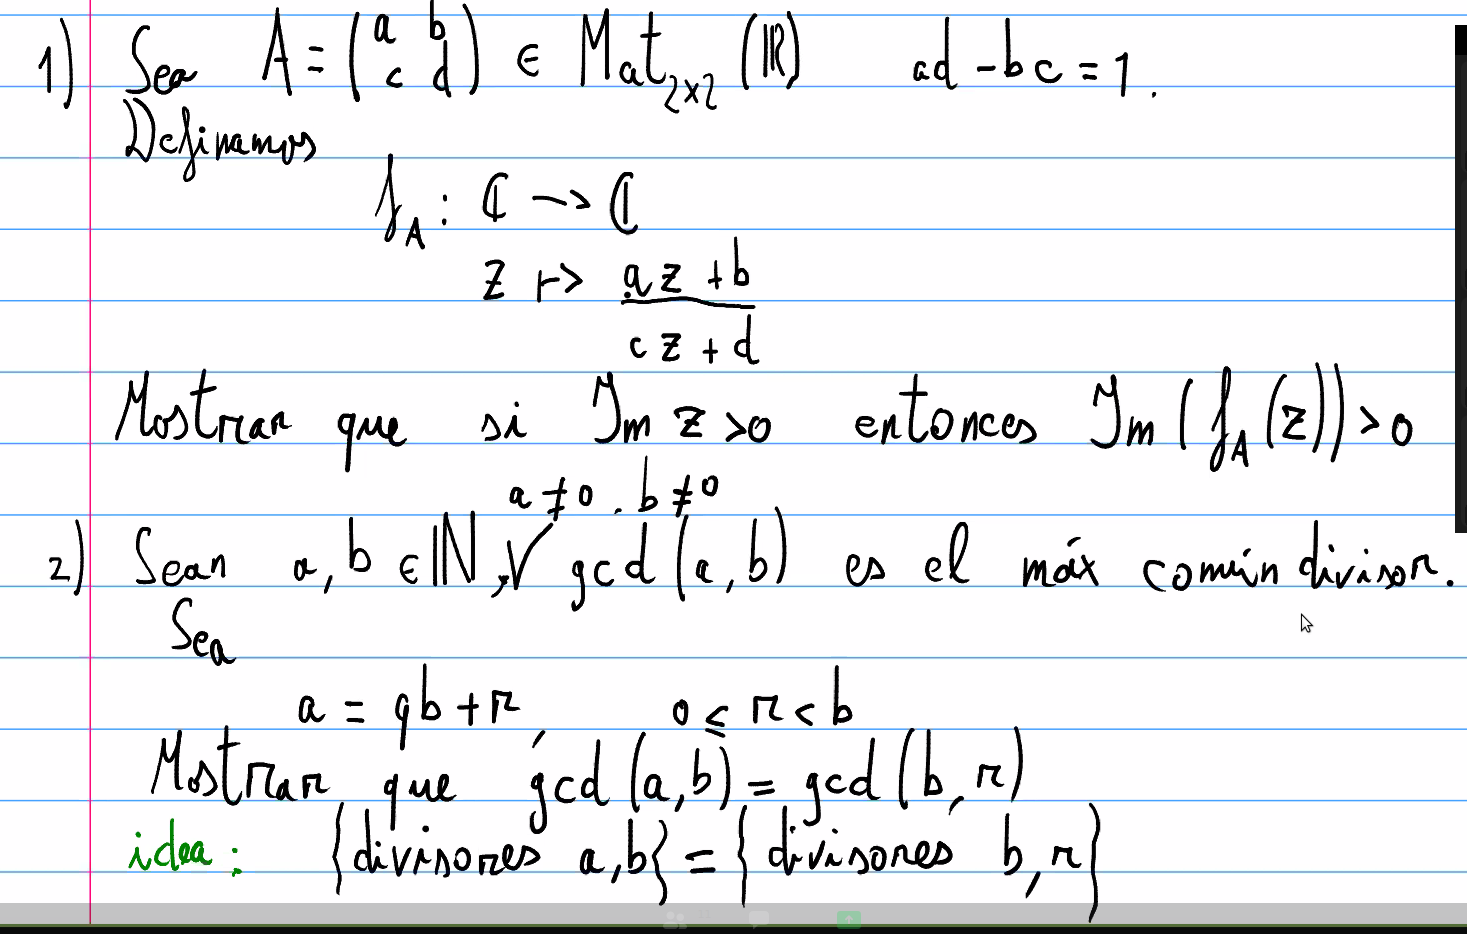 1) Sea A = (a b
c d) ∈ Mat₂ₓ₂ (ℝ) ad - bc = 1.
Definamos
f_A : ℂ → ℂ
z ↦ az + b
cz + d
Mostrar que si Im z > 0 entonces Im (f_A (z)) > 0
a ≠ 0, b ≠ 0
2) Sean a, b ∈ ℕ, gcd (a, b) es el máx común divisor.
Sea
a = qb + r 0 ≤ r < b
Mostrar que gcd (a, b) = gcd (b, r)
idea: {divisores a, b} = {divisores b, r}